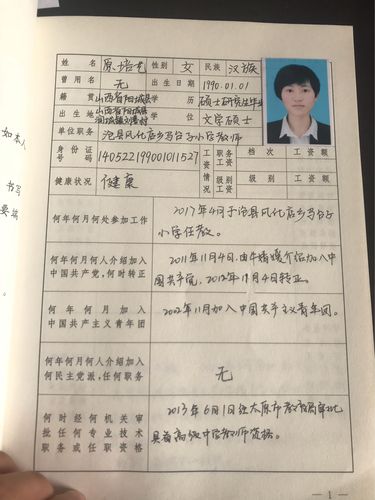 如本人
书写
要端
。
姓名 原培 性别 女 民族 汉族
曾用名 无 出生日期 1990.01.01
籍贯 山西省阳城县 学历 硕士研究生毕业
出生地 山西省阳城县 学位 文学硕士
单位职务 沧县风化店乡马台子小学教师
身份证号码 140522199001011527 工资 职务工资 档次 工资额
健康状况 健康 情况 级别工资 级别 工资额
何年何月何处参加工作 2017年4月于沧县风化店乡马台子
小学任教。
何年何月何人介绍加入 2011年11月4日,由牛 介绍加入中
中国共产党,何时转正 国共产党,2012年11月4日转正。
何年何月加入 2002年11月加入中国共产主义青年团。
中国共产主义青年团
何年何月何人介绍加入
何民主党派,任何职务 无
何时经何机关审 2013年6月1日经太原市教育局审批
批任何专业技术 具备高级中学教师资格。
职务或任职资格
—1—